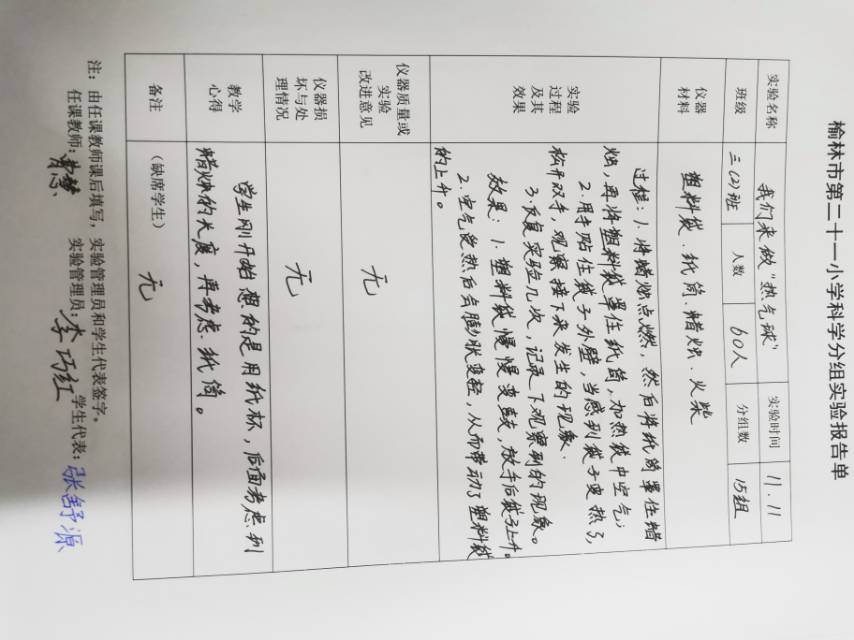 榆林市第二十一小学科学分组实验报告单
实验名称 我们来做“热气球” 实验时间 11.11
班级 三(2)班 人数 60人 分组数 15组
仪器材料 塑料袋、纸筒、蜡烛、火柴
实验过程及其效果
过程：1.将蜡烛点燃，然后将纸筒罩住蜡
烛，再将塑料袋罩住纸筒，加热袋中空气；
2.用手贴住袋子外壁，当感到袋子变热了，
松开双手，观察接下来发生的现象.
3.反复实验几次，记录下观察到的现象。
效果：1.塑料袋慢慢变鼓，放手后袋子上升。
2.空气受热后会膨胀变轻，从而带动了塑料袋
的上升。
仪器质量或实验改进意见 无
仪器损坏与处理情况 无
教学心得
学生刚开始想的是用纸杯，后面考虑到
蜡烛的长度，再考虑纸筒。
备注 （缺席学生） 无
注：由任课教师课后填写，实验管理员和学生代表签字。
任课教师： 实验管理员：李巧红 学生代表：张舒源